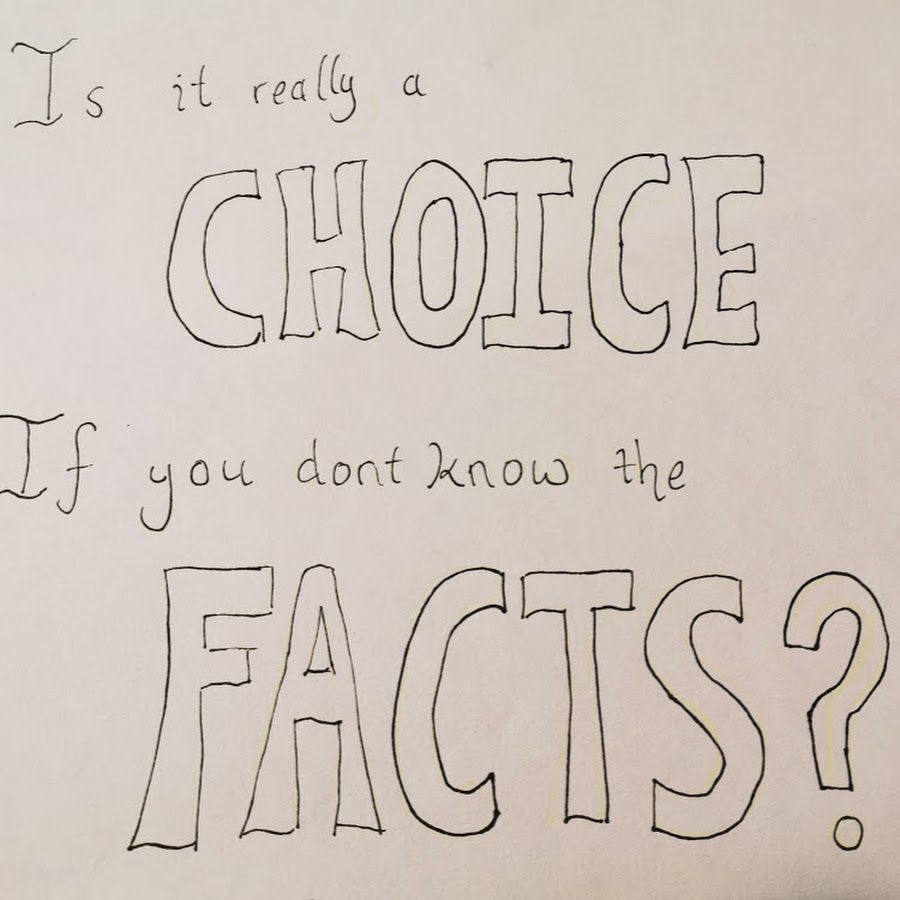 Is it really a
CHOICE
If you dont know the
FACTS?